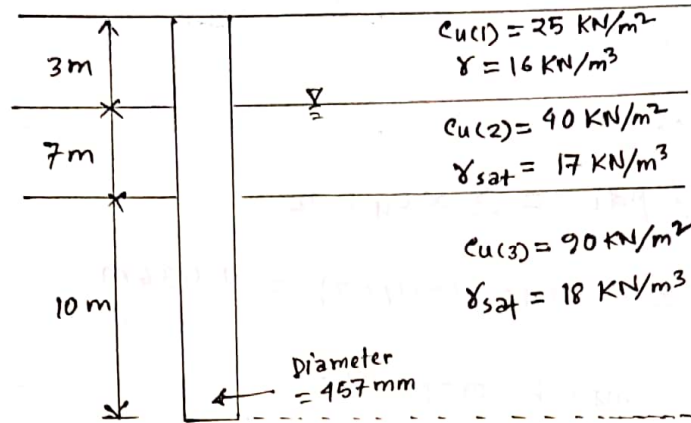 Cu(1) = 25 KN/m²
3m
γ = 16 KN/m³
Cu(2) = 40 KN/m²
7m
γsat = 17 KN/m³
Cu(3) = 90 KN/m²
γsat = 18 KN/m³
10 m
Diameter
= 457 mm